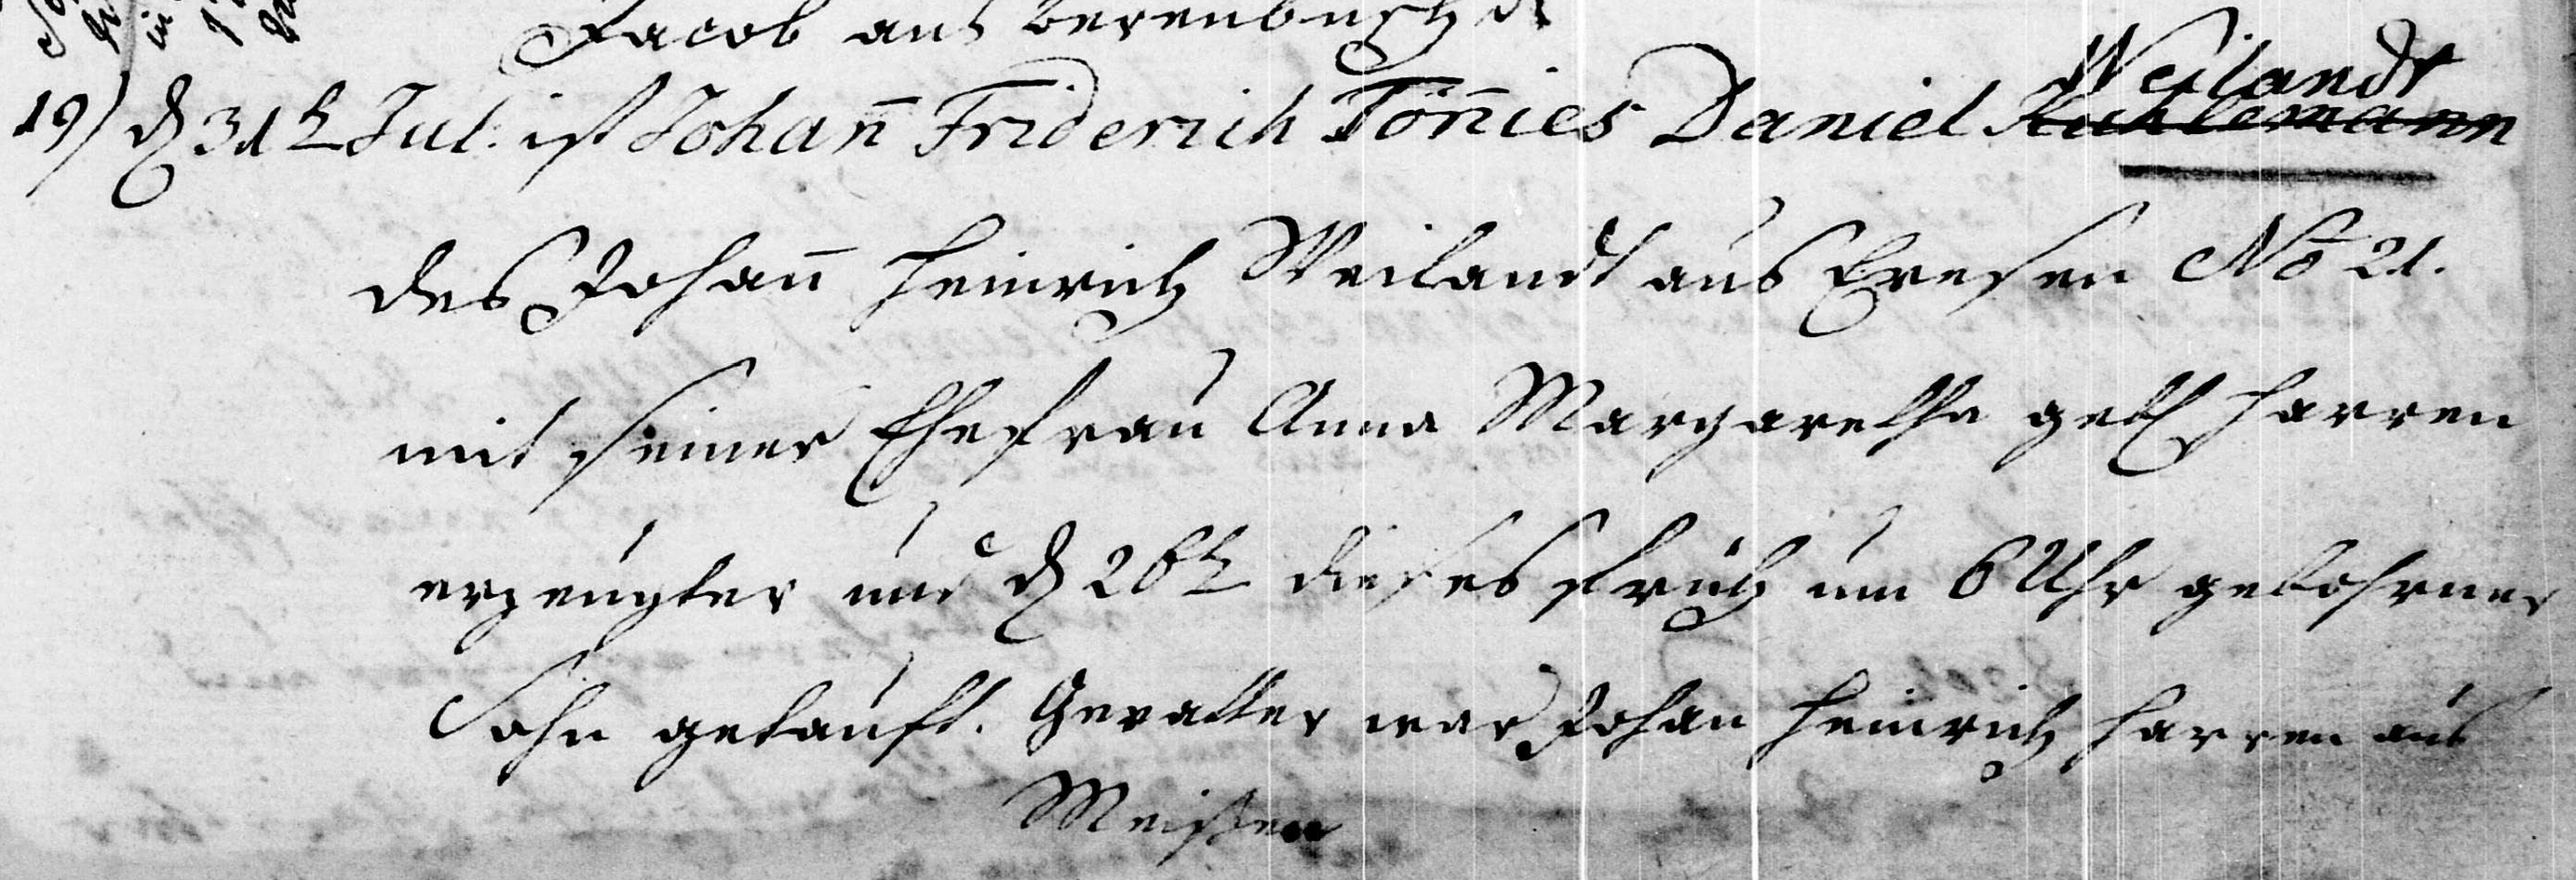 Jacob aus Berenbusch
19) d 31t Jul. ist Johan̄ Friderich Tön̄ies Daniel Kuhlemann Weilandt
des Johan̄ Heinrich Weilandt aus Evesen No 21.
mit seiner Ehefrau Anna Margarethe geb Harren
erzeugter und d 26t dieses früh um 6 Uhr gebohrner
Sohn getauft. Gevatter war Johan Heinrich Harren aus
Meißen